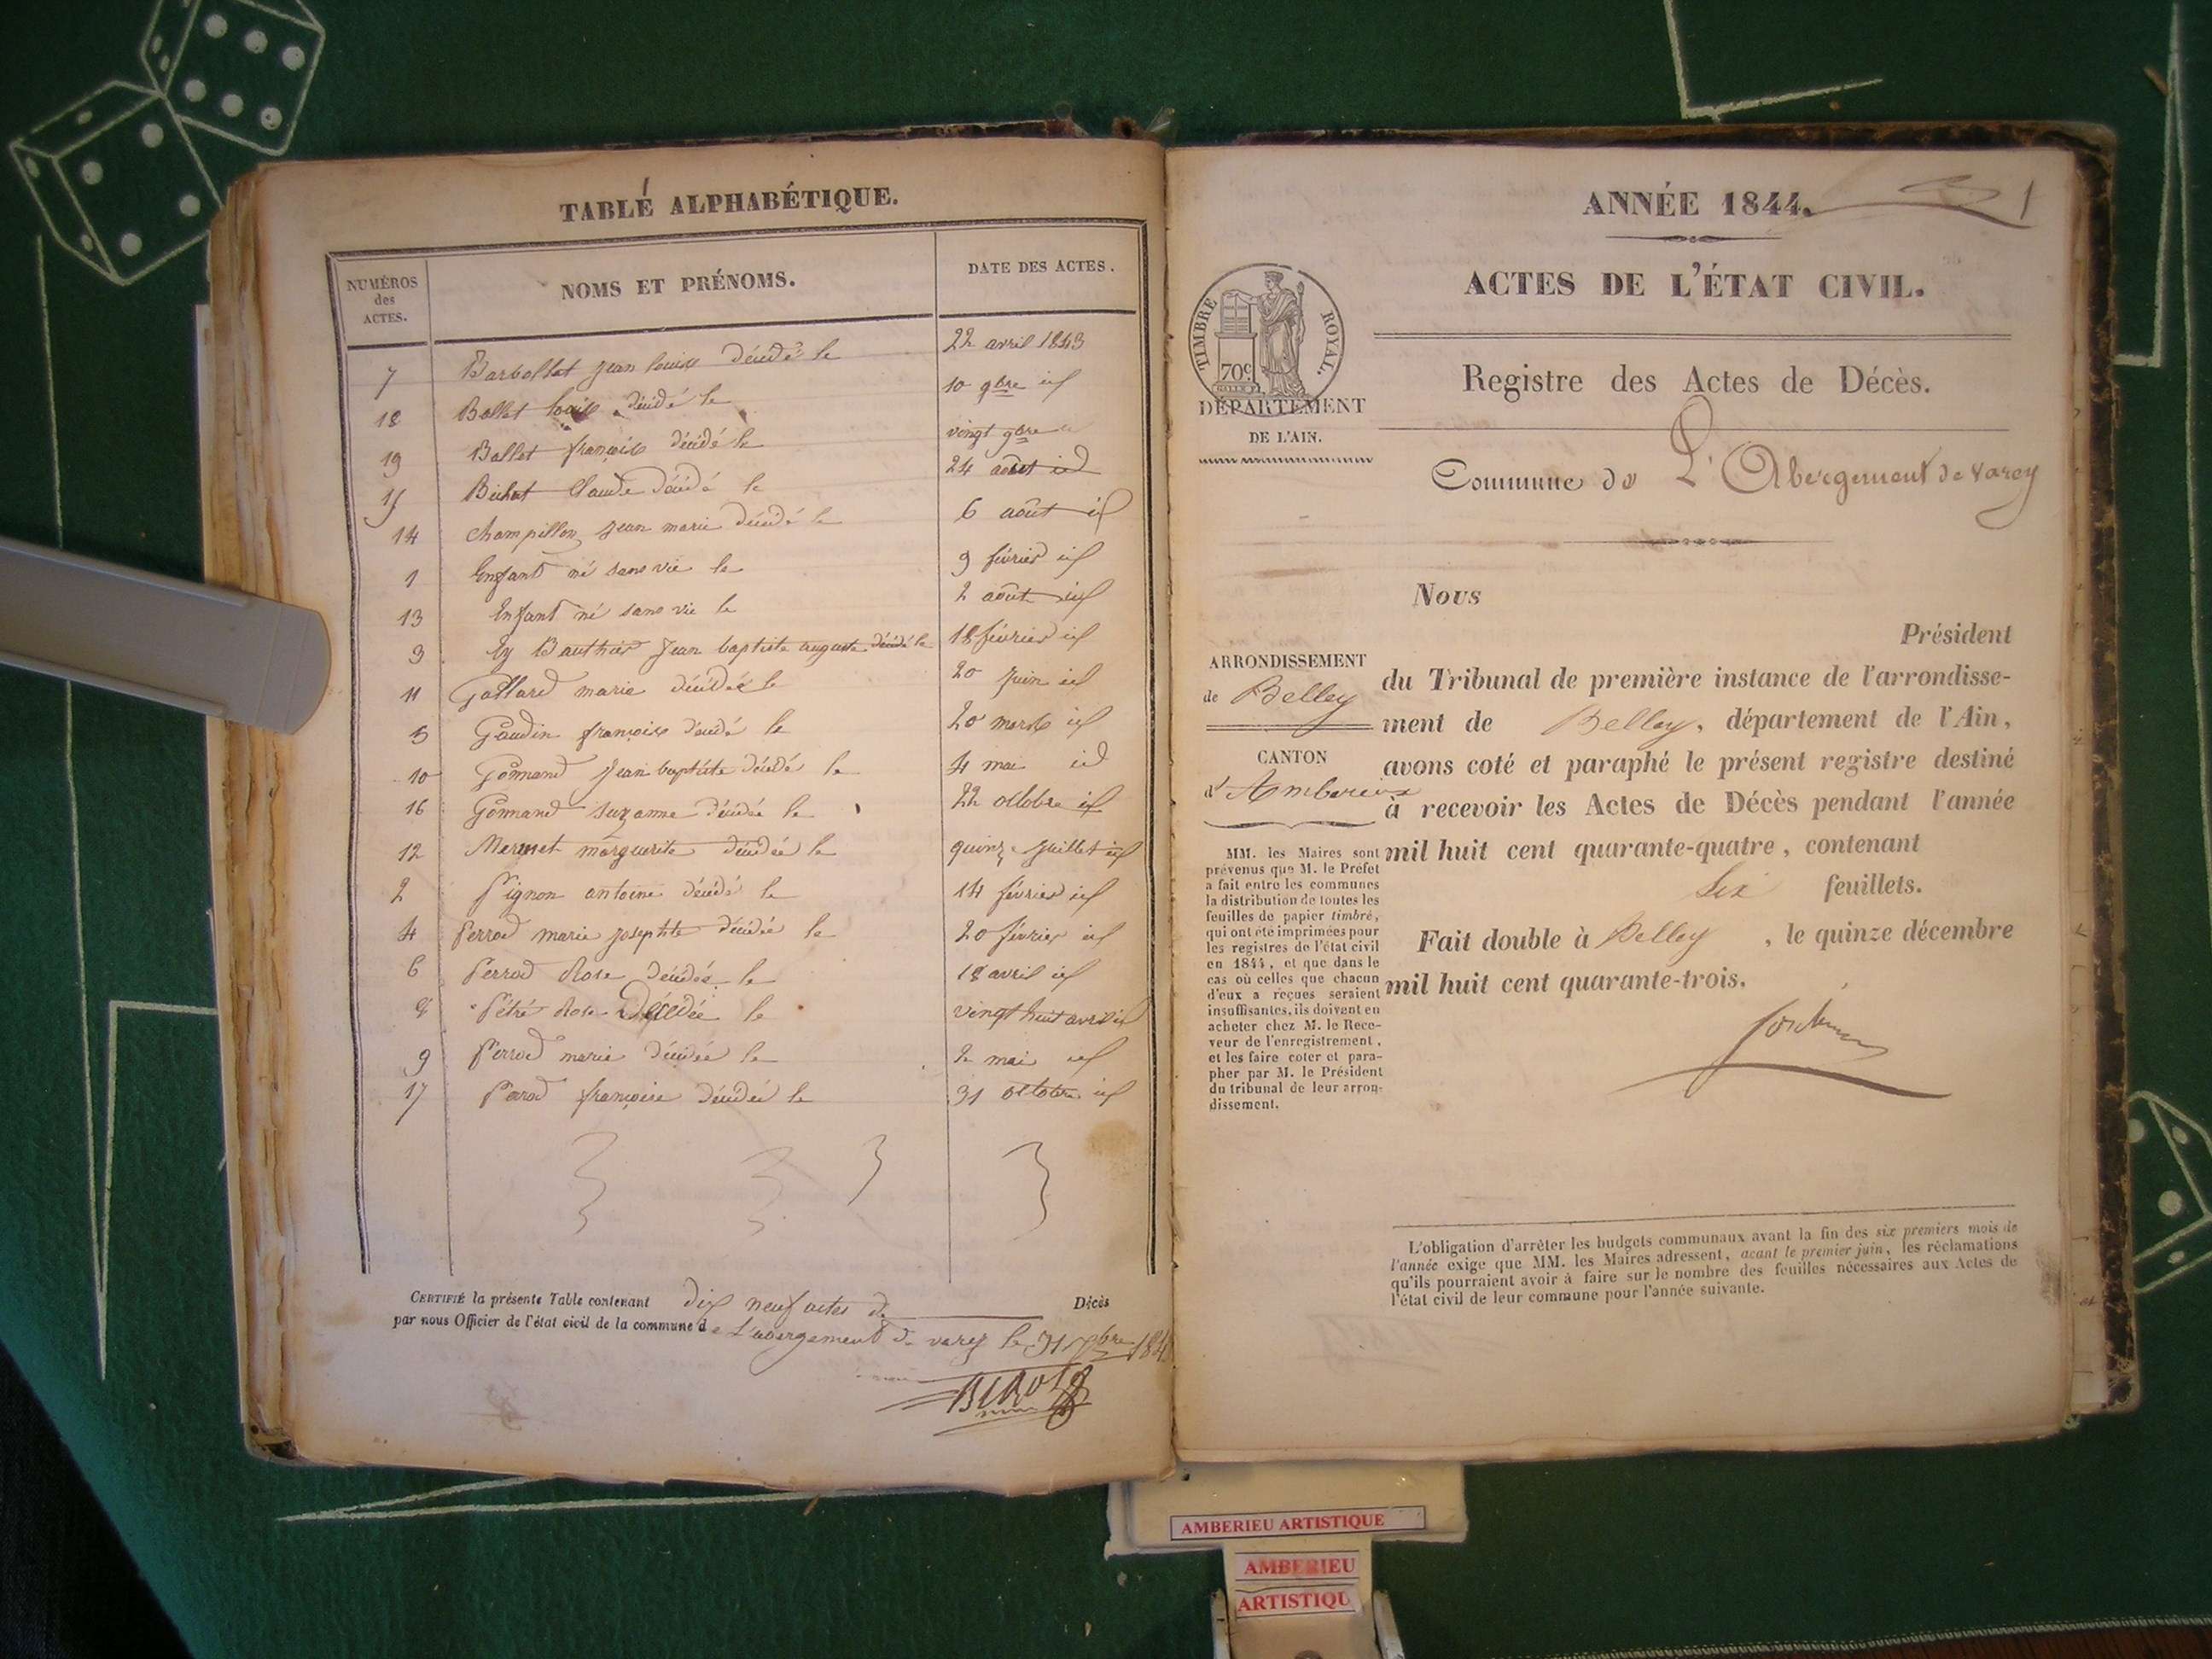 TABLE ALPHABÉTIQUE.
NUMÉROS des ACTES. NOMS ET PRÉNOMS. DATE DES ACTES.
7 Barbollat jean louis décédé le 22 avril 1843
18 Ballet louis décédé le 10 9bre id
19 Ballet françois décédé le vingt 9bre
15 Bichat Claude décédé le 24 août id
14 Champillon jean marie décédé le 6 août id
1 Enfant né sans vie le 9 février id
13 Enfant né sans vie le 2 août id
3 Ey Bauthier jean baptiste auguste décédé le 18 février id
11 Gallard marie décédée le 20 juin id
5 Gaudin françois décédé le 20 mars id
10 Gonnand jean baptiste décédé le 4 mai id
16 Gonnand suzanne décédée le 22 octobre id
12 Mermet marguerite décédée le quinze juillet id
2 Pignon antoine décédé le 14 février id
4 Perrod marie josephte décédée le 20 février id
6 Perrod Rose décédée le 18 avril id
8 Pétré Rose Décédée le vingt huit avril id
9 Perrod marie décédée le 2 mai id
17 Perrod françoise décédée le 31 octobre id
CERTIFIÉ la présente Table contenant dix neuf actes de Décès
par nous Officier de l'état civil de la commune de L'abergement de varey le 31 Xbre 184
ANNÉE 1844. 1
ACTES DE L'ÉTAT CIVIL.
TIMBRE ROYAL.
70c
Registre des Actes de Décès.
DÉPARTEMENT
DE L'AIN.
Commune de L'Abergement de Varey
Nous
Président
ARRONDISSEMENT
de Belley
du Tribunal de première instance de l'arrondisse-
ment de Belley, département de l'Ain,
CANTON
d'Amberieux
avons coté et paraphé le présent registre destiné
à recevoir les Actes de Décès pendant l'année
mil huit cent quarante-quatre, contenant
six feuillets.
Fait double à Belley, le quinze décembre
mil huit cent quarante-trois.
MM. les Maires sont
prévenus que M. le Préfet
a fait entre les communes
la distribution de toutes les
feuilles de papier timbré,
qui ont été imprimées pour
les registres de l'état civil
en 1844, et que dans le
cas où celles que chacun
d'eux a reçues seraient
insuffisantes, ils doivent en
acheter chez M. le Rece-
veur de l'enregistrement,
et les faire coter et para-
pher par M. le Président
du tribunal de leur arron-
dissement.
L'obligation d'arrêter les budgets communaux avant la fin des six premiers mois de
l'année exige que MM. les Maires adressent, avant le premier juin, les réclamations
qu'ils pourraient avoir à faire sur le nombre des feuilles nécessaires aux Actes de
l'état civil de leur commune pour l'année suivante.
AMBERIEU ARTISTIQUE
AMBERIEU
ARTISTIQU